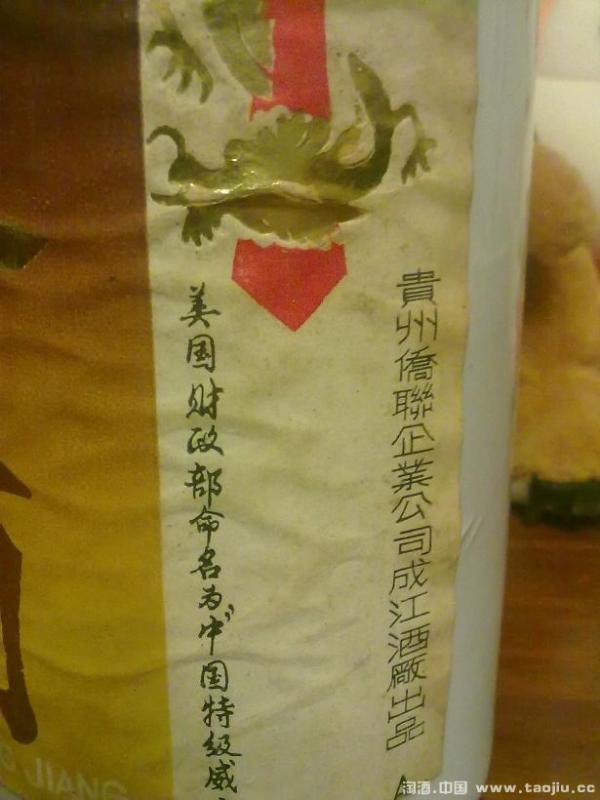 貴州僑聯企業公司成江酒廠出品
美国财政部命名为"中国特级威
G JIANG
淘酒.中国 www.taojiu.cc